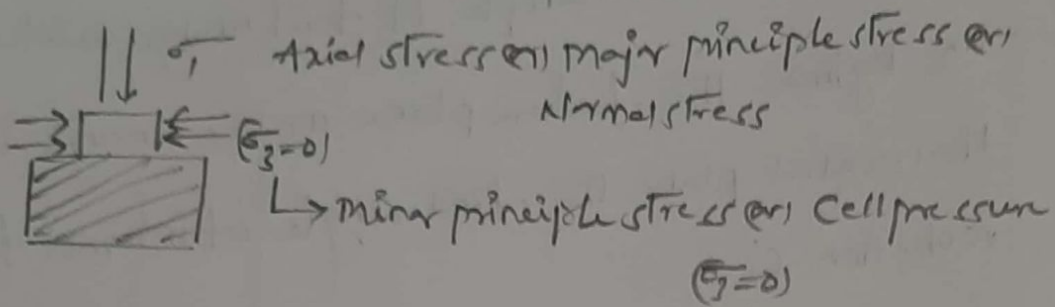 σ₁ Axial stress (or) major principle stress (or)
Normal stress
(σ₃=0)
↳ minor principle stress (or) Cell pressure
(σ₃=0)